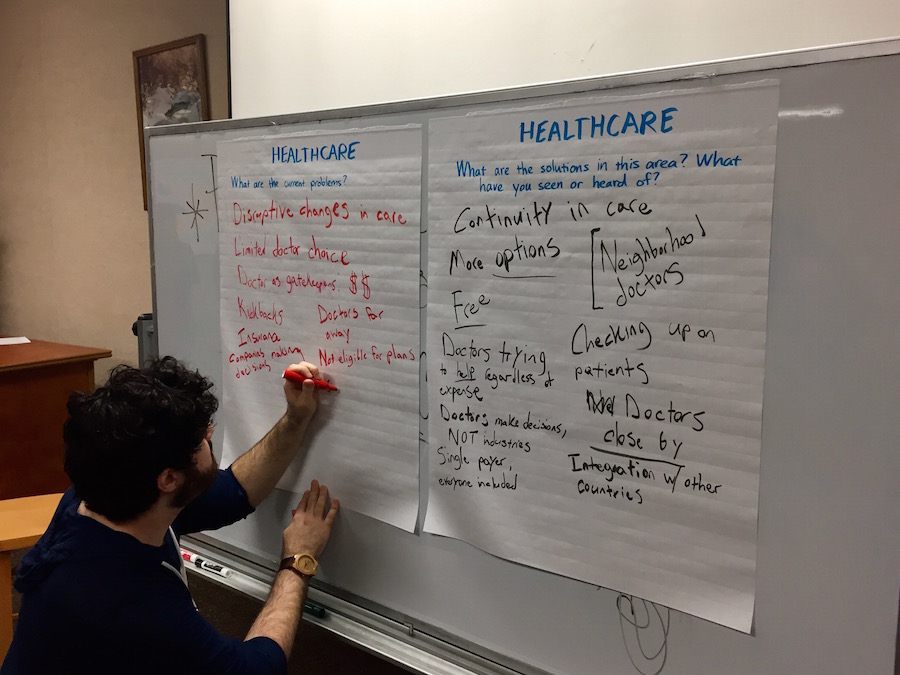 HEALTHCARE
What are the current problems?
Disruptive changes in care
Limited doctor choice
Doctor as gatekeepers $$
Kickbacks
Insurance
companies making
decisions
Doctors far
away
Not eligible for plans
HEALTHCARE
What are the solutions in this area? What
have you seen or heard of?
Continuity in care
More options
Free
Doctors trying
to help regardless of
expense
Doctors make decisions,
NOT industries
Single payer,
everyone included
Neighborhood
doctors
Checking up on
patients
Doctors
close by
Integration w/ other
countries